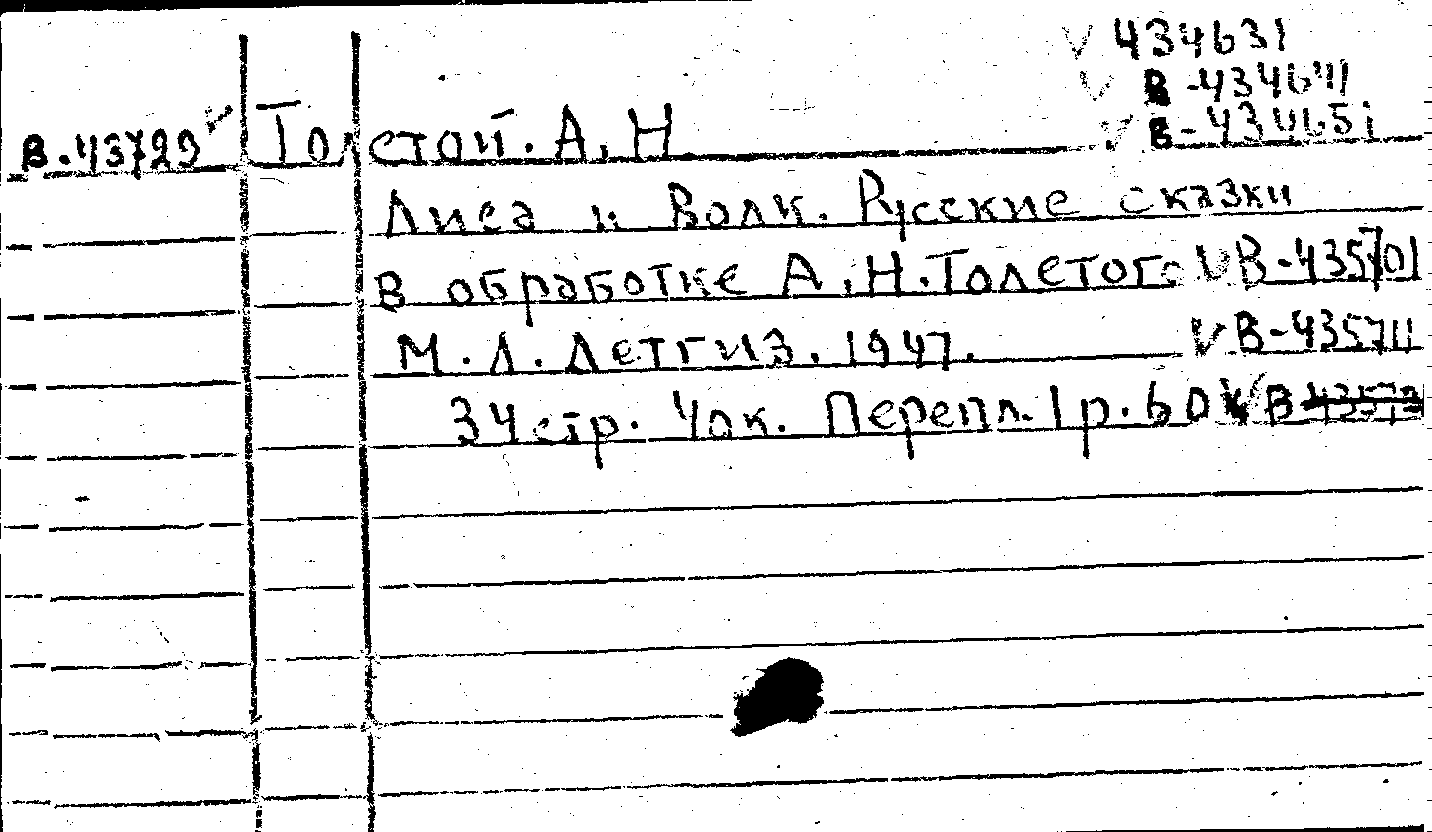 V 434631
V В-434641
V В-434651
В-43729 V Толстой. А. Н
Лиса и Волк. Русские сказки
в обработке А. Н. Толстого V В-435701
М. Л. Детгиз. 1947. V В-435711
34 стр. Чок. Перепл. 1 р. 60 к V В-43572